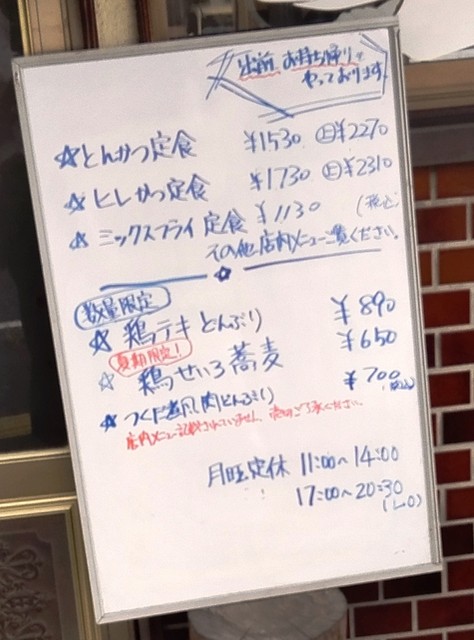 出前、お持ち帰り
やっております
☆とんかつ定食 ¥1530 ㊤¥2270
☆ヒレかつ定食 ¥1730 ㊤¥2310
☆ミックスフライ定食 ¥1130 (税込)
その他店内メニューご覧ください。
数量限定
☆鶏テキどんぶり ¥890
夏期限定!
☆鶏せいろ蕎麦 ¥650
☆つくだ煮風肉どんぶり ¥700 (税込)
店内メニュー記載されていません、ご了承ください。
月曜定休 11:00~14:00
17:00~20:30
(L.O)